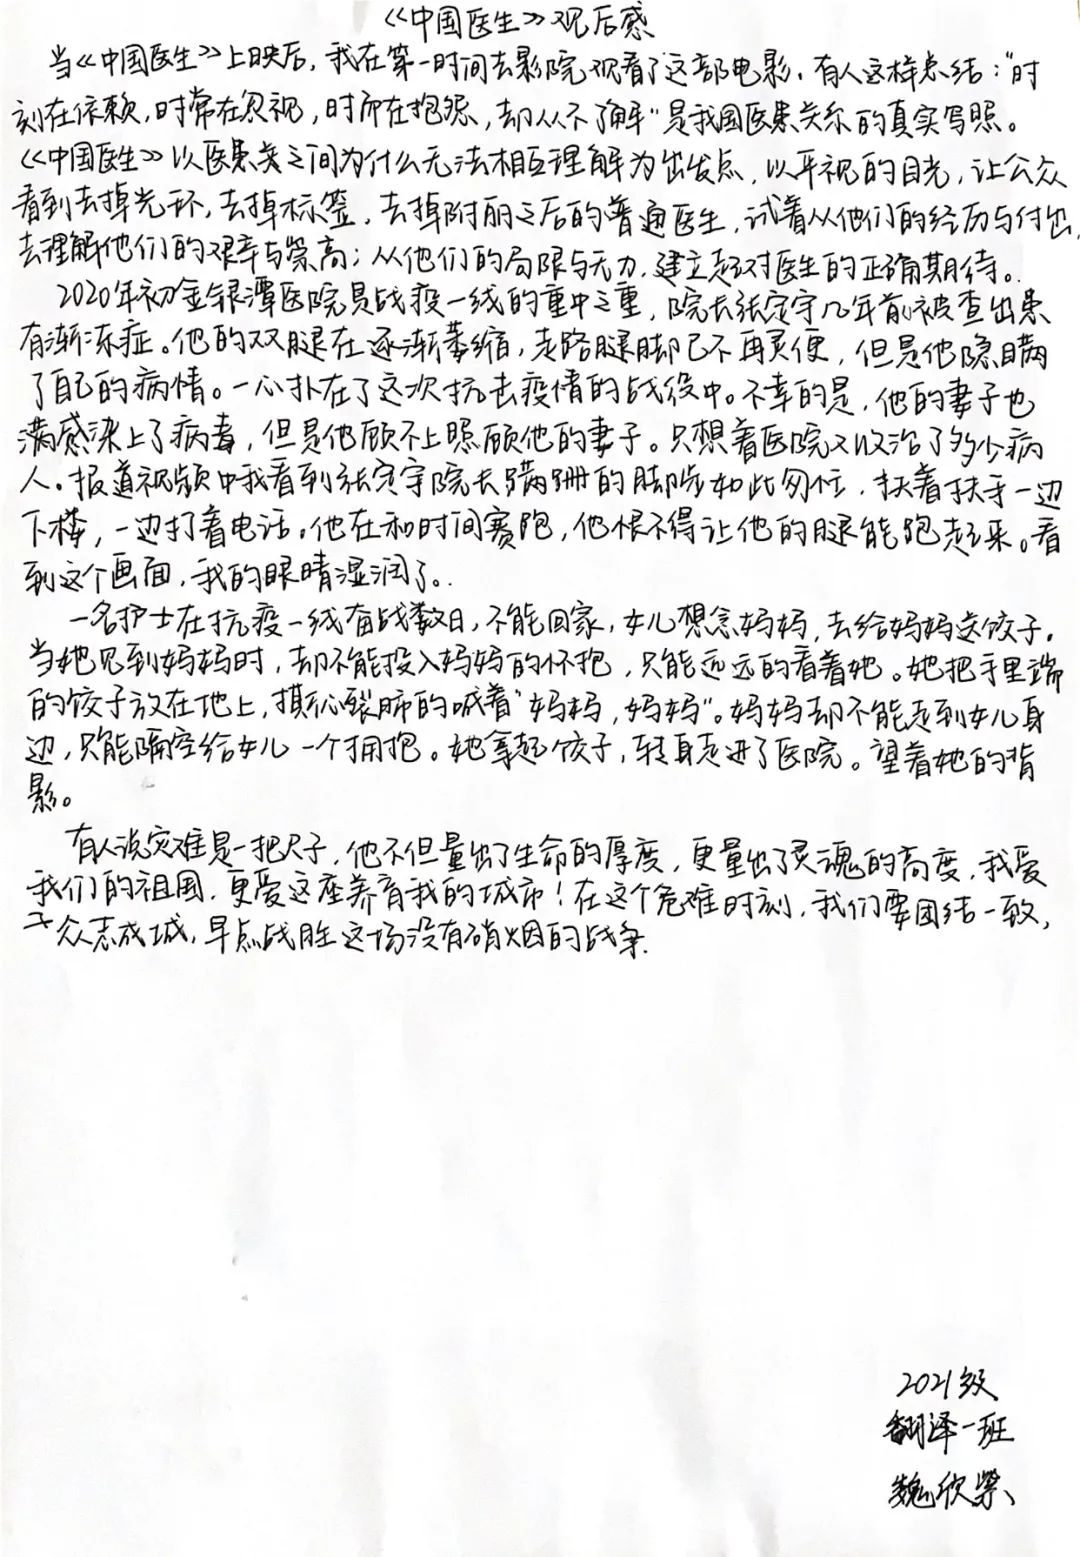 《中国医生》观后感
当《中国医生》上映后，我在第一时间去影院观看了这部电影。有人这样总结：“时
刻在依赖，时常在忽视，时而在抱怨，却从不了解”是我国医患关系的真实写照。
《中国医生》以医患类之间为什么无法相互理解为出发点，以平视的目光，让公众
看到去掉光环，去掉标签，去掉附丽之后的普通医生，试着从他们的经历与付出，
去理解他们的艰辛与崇高；从他们的局限与无力，建立起对医生的正确期待。
2020年初金银潭医院是战疫一线的重中之重，院长张定宇几年前被查出患
有渐冻症。他的双腿在逐渐萎缩，走路腿脚已不再灵便，但是他隐瞒
了自己的病情。一心扑在了这次抗击疫情的战役中。不幸的是，他的妻子也
感染上了病毒，但是他顾不上照顾他的妻子。只想着医院又收治了多少病
人。报道视频中我看到张定宇院长蹒跚的脚步如此匆忙，扶着扶手一边
下楼，一边打着电话。他在和时间赛跑，他恨不得让他的腿能跑起来。看
到这个画面，我的眼睛湿润了。
一名护士在抗疫一线奋战数日，不能回家，女儿想念妈妈，去给妈妈送饺子。
当她见到妈妈时，却不能投入妈妈的怀抱，只能远远的看着她。她把手里端
的饺子放在地上，撕心裂肺的喊着“妈妈，妈妈”。妈妈却不能走到女儿身
边，只能隔空给女儿一个拥抱。她拿起饺子，转身走进了医院。望着她的背
影。
有人说灾难是一把尺子，他不但量出了生命的厚度，更量出了灵魂的高度，我爱
我们的祖国，更爱这座养育我的城市！在这个危难时刻，我们要团结一致，
众志成城，早点战胜这场没有硝烟的战争.
2021级
翻译一班
魏欣